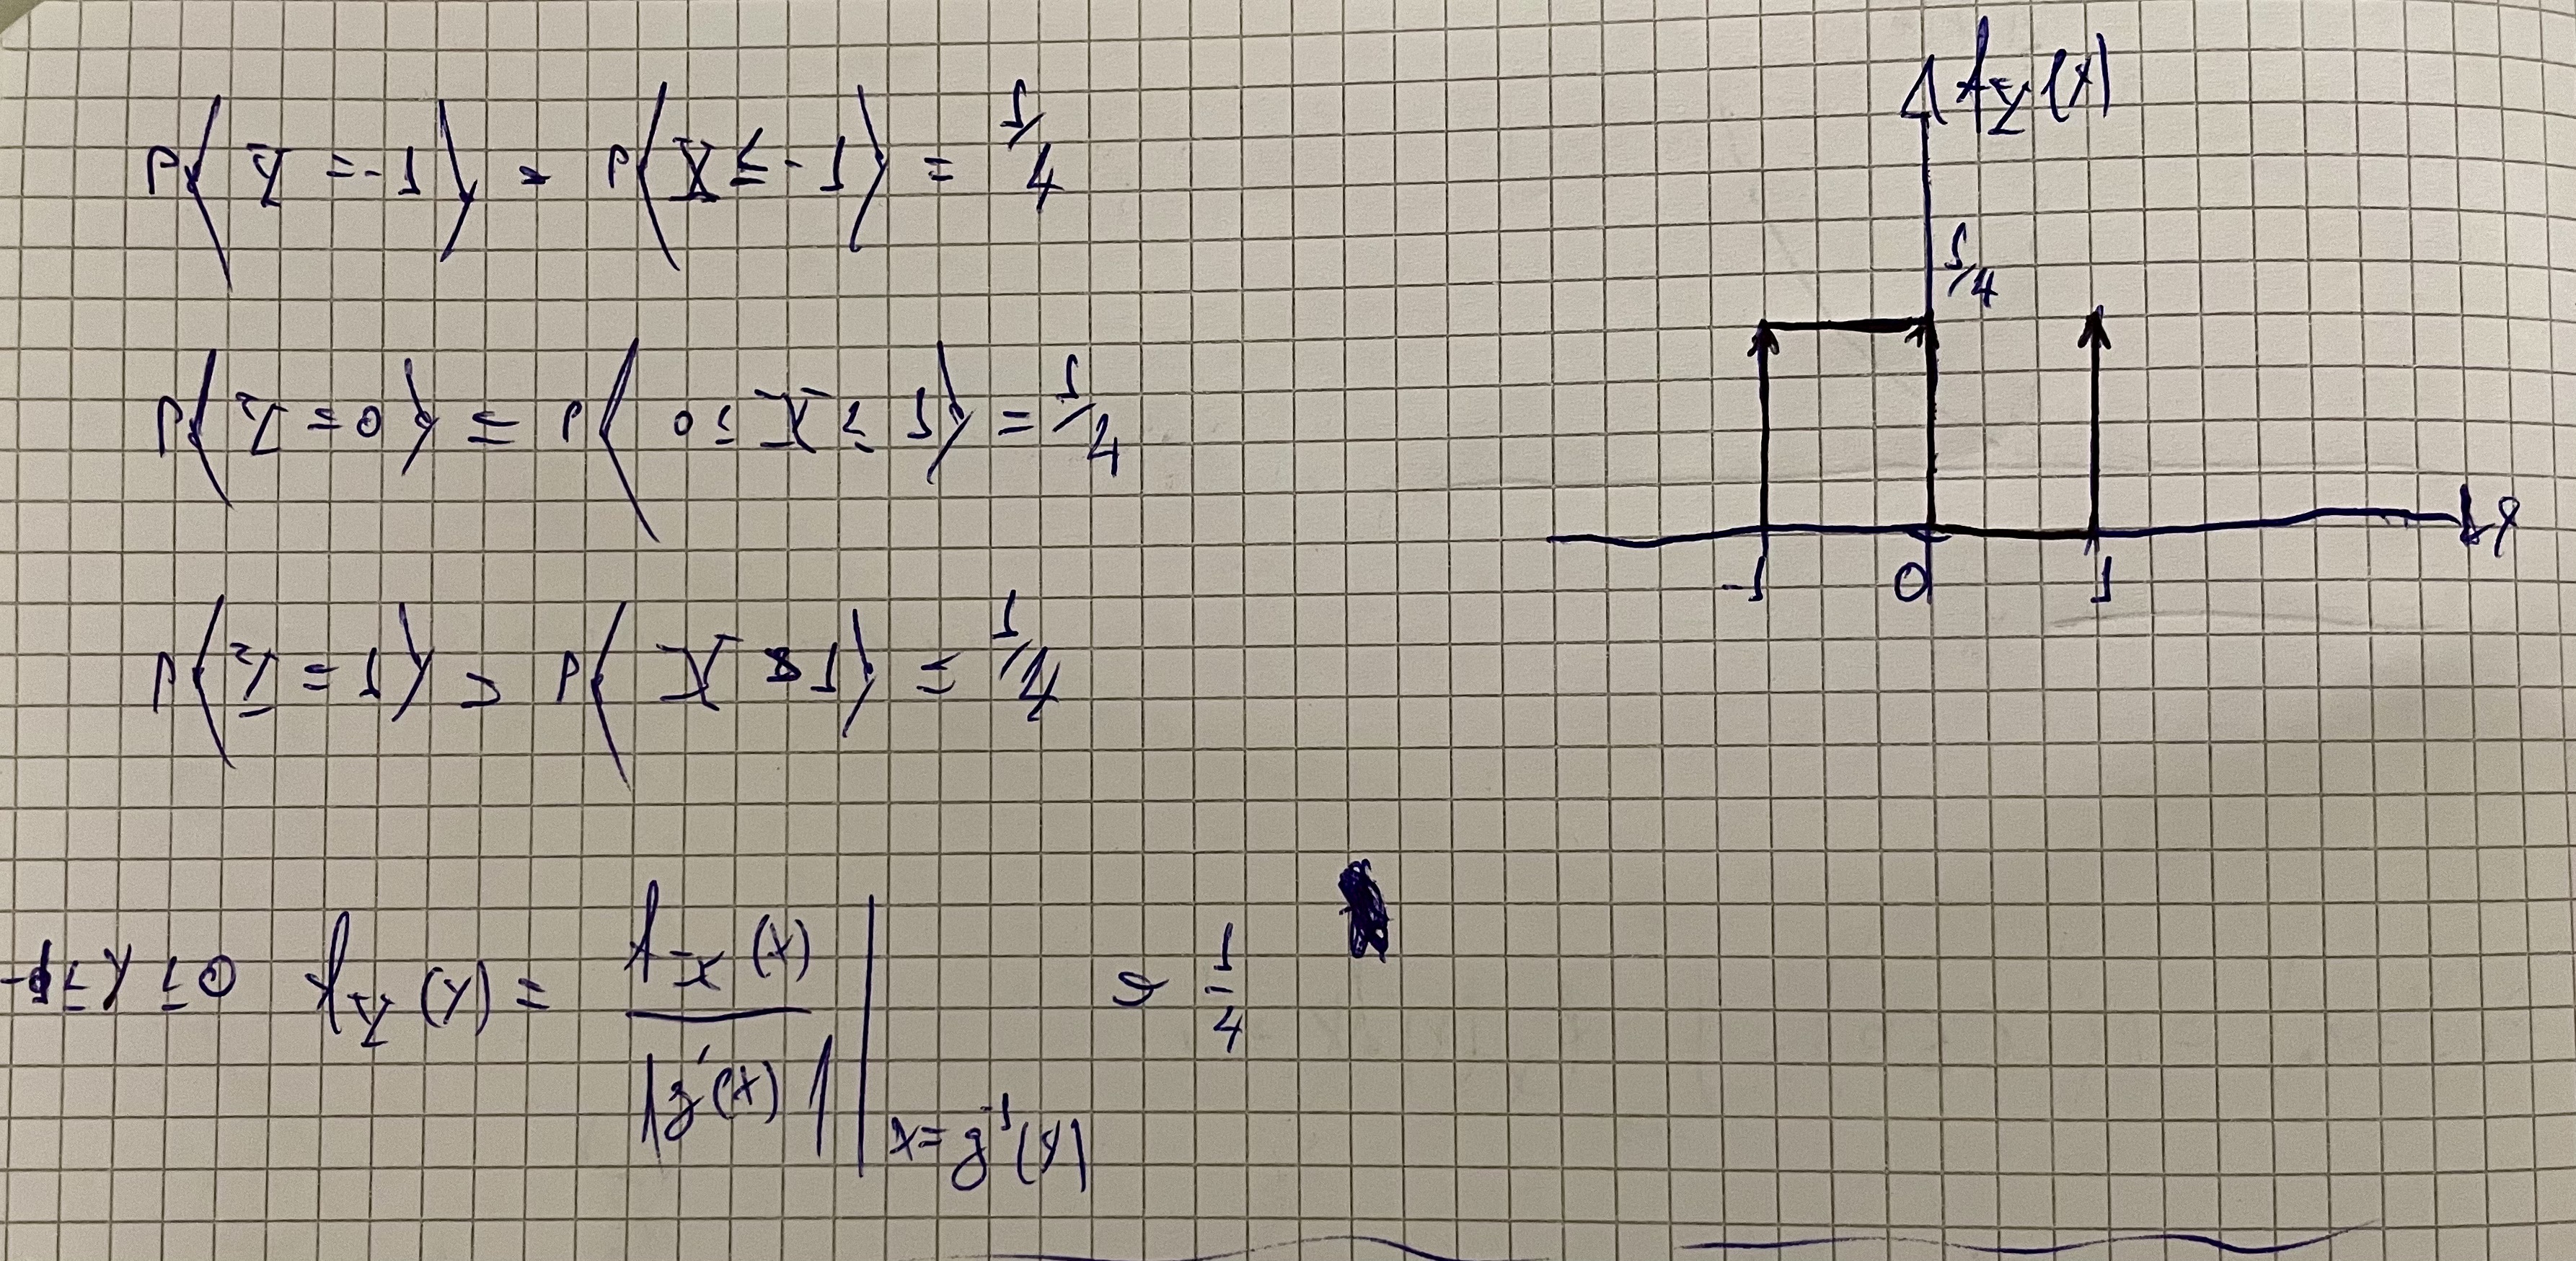 P{Y = -1} = P{X ≤ -1} = 1/4
P{Y = 0} = P{0 ≤ X ≤ 1} = 1/4
P{Y = 1} = P{X ≥ 1} = 1/4
-1 ≤ y ≤ 0 f_Y(y) = f_X(x) / |g'(x)| |_{x = g^{-1}(y)} = 1/4
f_Y(x)
1/4
-1 0 1